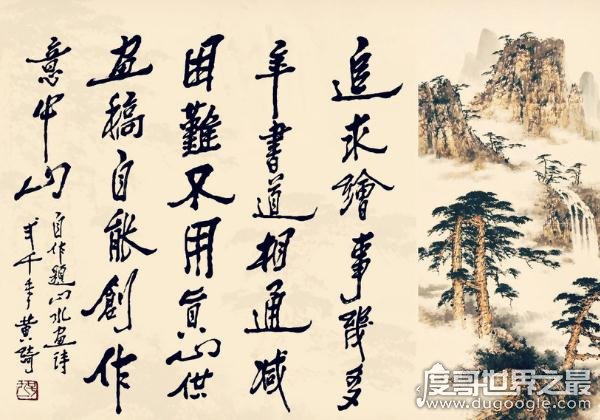 追求繪事幾多
年書道相通减
困難不用真山供
畫稿自能創作
意中山
自作題山水畫詩
弍千年黄綺
度哥世界之最
www.dugoogle.com